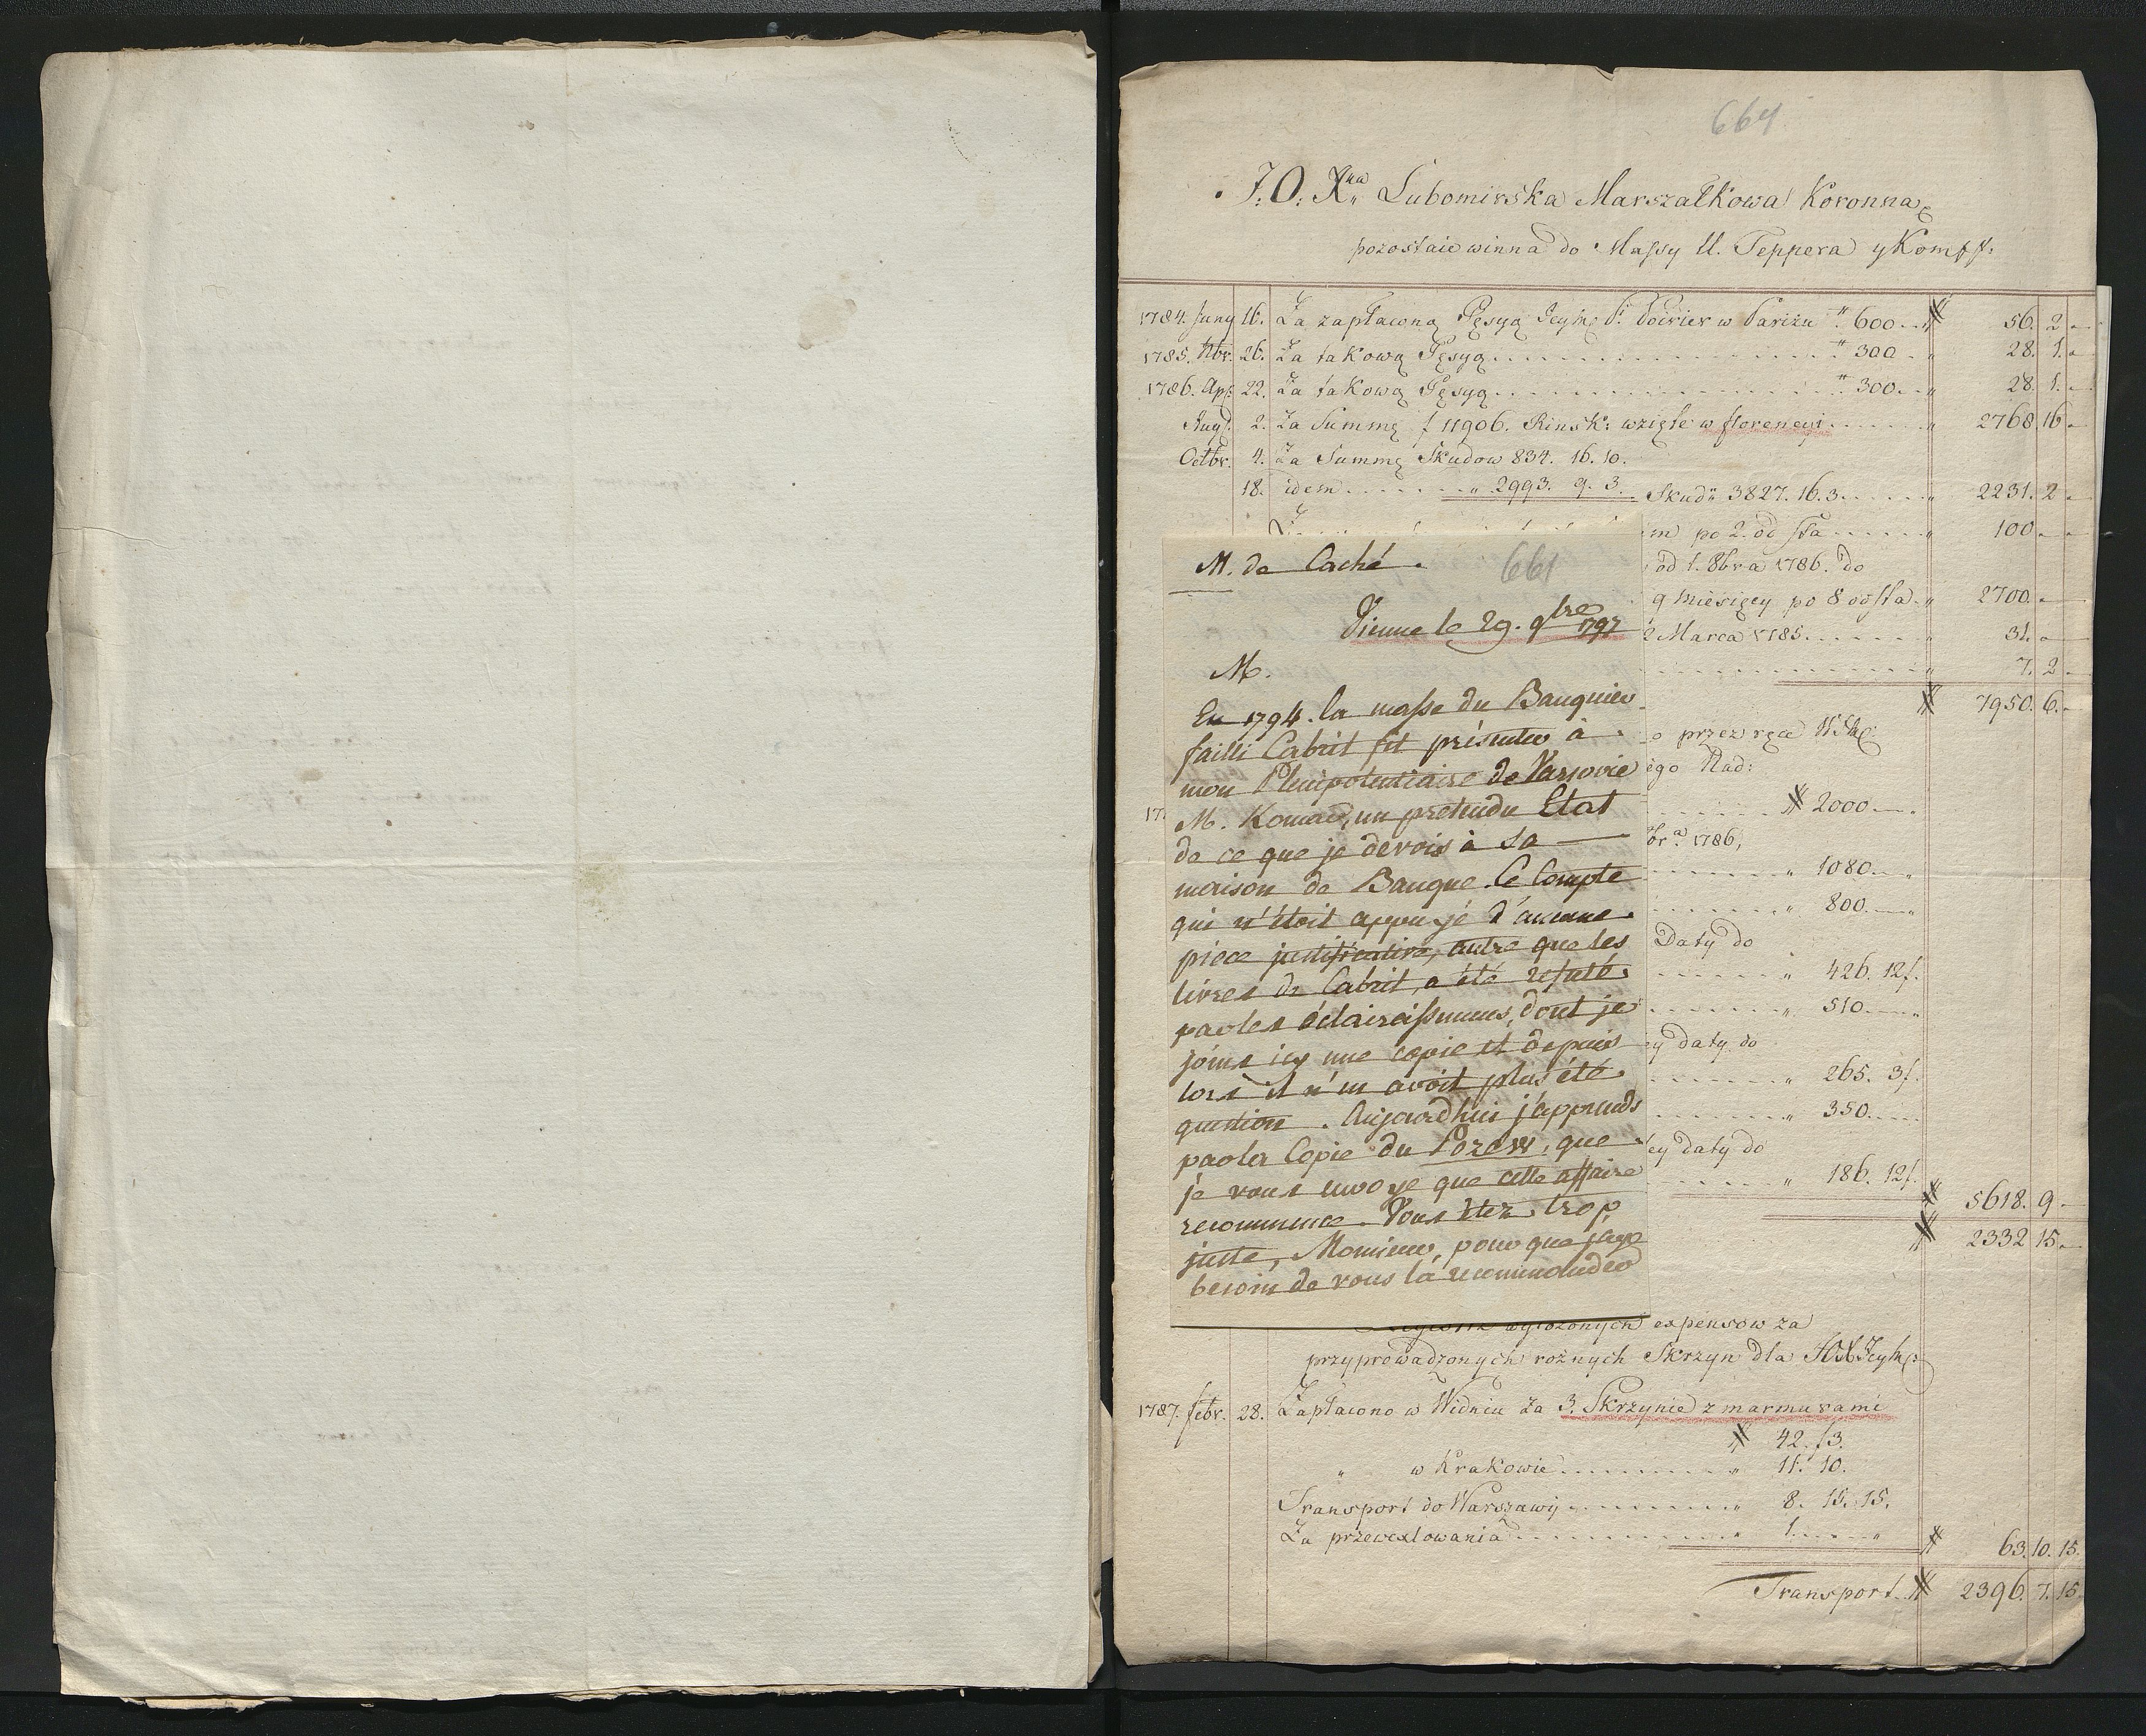 664
J: O: Xna Lubomirska Marszałkowa Koronna
pozostaie winna do Massy U. Teppera y Komp
1784. Juny 16. Za zapłaconą Pęsyą Jeyhę P. Poirier w Pariżu # 600 56. 2
1785. Nbr: 26. Za takową Pęsyą # 300 28. 1.
1786. Apr: 22. Za takową Pęsyą # 300 28. 1.
Aug: 2. Za Summę f 11906. Rinsk: wzięte w florencyi 2768. 16
Octbr. 4. Za Summę Skudow 834. 16. 10.
18. idem " 2993. 9. 3. Skudw 3827. 16. 3. 2231. 2
m po 2. od sta 100
od 1. 8bra 1786. do
9 miesięcy po 8 od sta 2700.
2 Marca 1785. 31.
7. 2
# 7950. 6.
o przez ręce
ego Nad:
17 # 2000
br.a 1786,
" 1080
" 800.
Daty do
" 426. 12f.
" 510
ey daty do
" 265. 3f.
" 350
ey daty do
" 186. 12f.
# 5618. 9
# 2332 15.
M. de Caché.
661
Vienne le 29. 9bre 1797
M.
En 1794. la masse du Banquier
failli Cabrit fit présenter à
mon Plenipotentiaire de Varsovie
M. Konard, un pretendu Etat
de ce que je devois à sa
maison de Banque. Ce Compte
qui n'étoit appuyé d'aucune
piece justificative, autre que les
livres de Cabrit, a été refuté
par les éclaircissemens, dont je
joins icy une copie et depuis
lors il n'en avoit plus été
question. Aujourd'hui j'apprends
par la Copie du Pozew, que
je vous envoye que cette affaire
recommence. Vous êtez trop
juste, Monsieur, pour que j'aye
besoin de vous la recommander
wyłożonych expensow za
przyprowadzonych rożnych Skrzyn dla
1787. febr. 28. Zapłacono w Widniu za 3. Skrzynie z marmurami
# 42. 13.
" w Krakowie " 11. 10.
Transport do Warszawy " 8. 15. 15.
Za przewexlowania " 1. "
# 63. 10. 15.
Transport # 2396. 7. 15